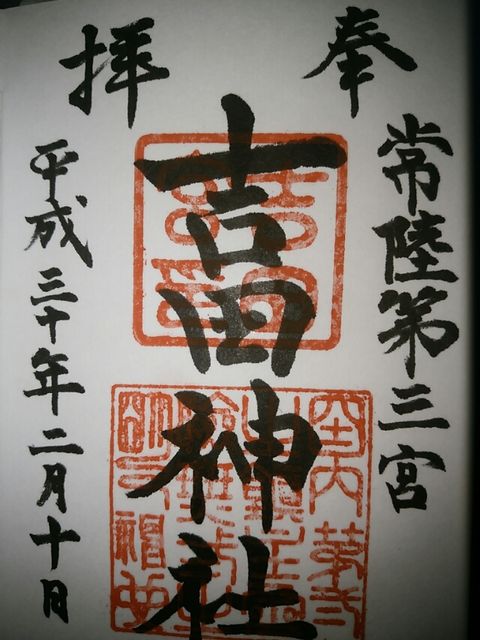 奉拝
常陸第三宮
吉田神社
平成三十年二月十日